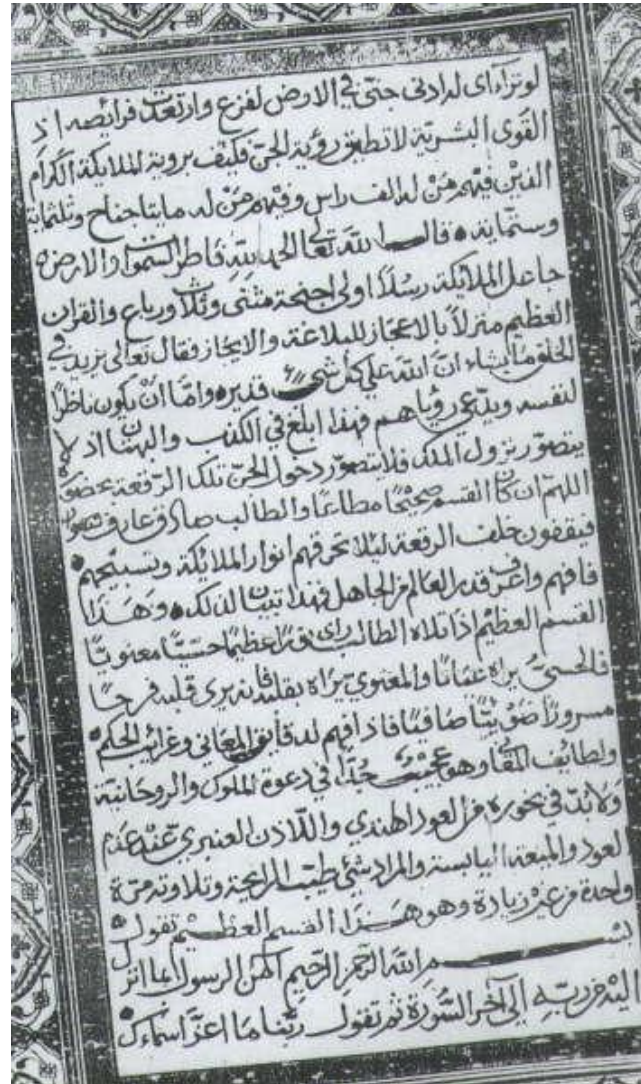 لو تراءاى له ادنى جنى في الارض لفزع وارتعدت فرائصه اذ
القوى البشرية لا تطيق رؤية الجن فكيف بروية الملايكة الكرام
الذين فيهم من له الف راس وفيهم من له مايتا جناح وثلثماية
وستماية قال الله تعالى الحمد لله فاطر السموات والارض
جاعل الملائكة رسلا اولى اجنحة مثنى وثلاث ورباع والقران
العظيم منزلا بالاعجاز للبلاغة والايجاز فقال تعالى يزيد في
الخلق ما يشاء ان الله على كل شئ قدير واما ان يكون ناظرا
لنفسه ويدعى رؤياهم فهذا ابلغ في الكذب والبهتان اذ لا
يتصور نزول الملك فلا يتصور دخول الجن تلك الرقعة
اللهم ان كان القسم صحيحا مطاعا والطالب صادق عارف
فيقفون خلف الرقعة ليلا تحرقهم انوار الملائكة وتسبيحهم
فافهم واعرف قدر العالم من الجاهل فهذا تبيان لذلك وهذا
القسم العظيم اذا تلاه الطالب راى عظيما حسيا معنويا
فالحسى يراه عيانا والمعنوي يراه بقلبه فانه يرى قلبه فرحا
مسرورا ضوئيا صافيا فاذا فهم له دقايق المعاني وغرائب الحكم
ولطايف وهو عجيب جدا في دعوة الملوك والروحانية
ولا بد في بخوره من العود الهندي واللادن العنبري عند عدم
العود والميعة اليابسة والمراد شئ طيب الرايحة وتلاوته مرة
واحدة من غير زيادة وهو هذا القسم العظيم تقول
بسم الله الرحمن الرحيم امن الرسول بما انزل
اليه من ربه الى آخر السورة ثم تقول ربنا ما اعز اسماءك